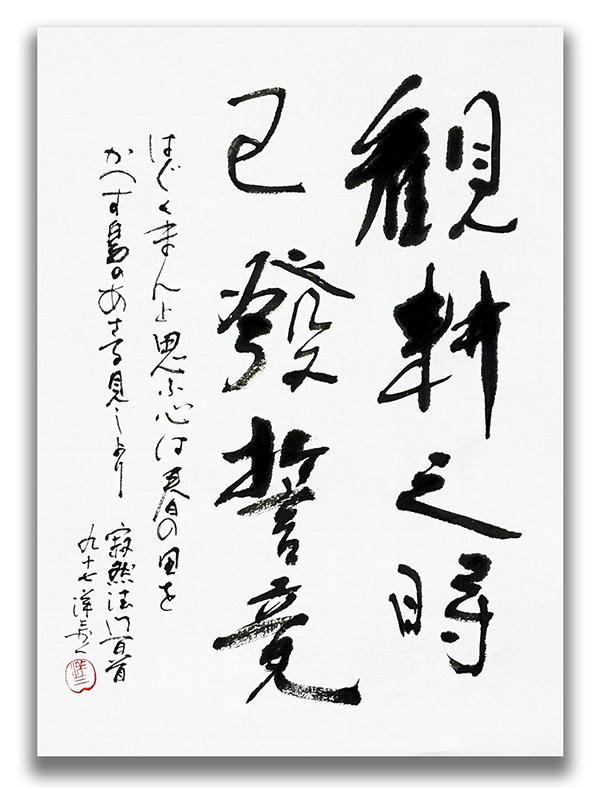 観耕之時
已發誓竟
はぐくまんと思ふ心は春の田を
かへす鳥のあさる見しより
寂然法門百首
九十七 洋三